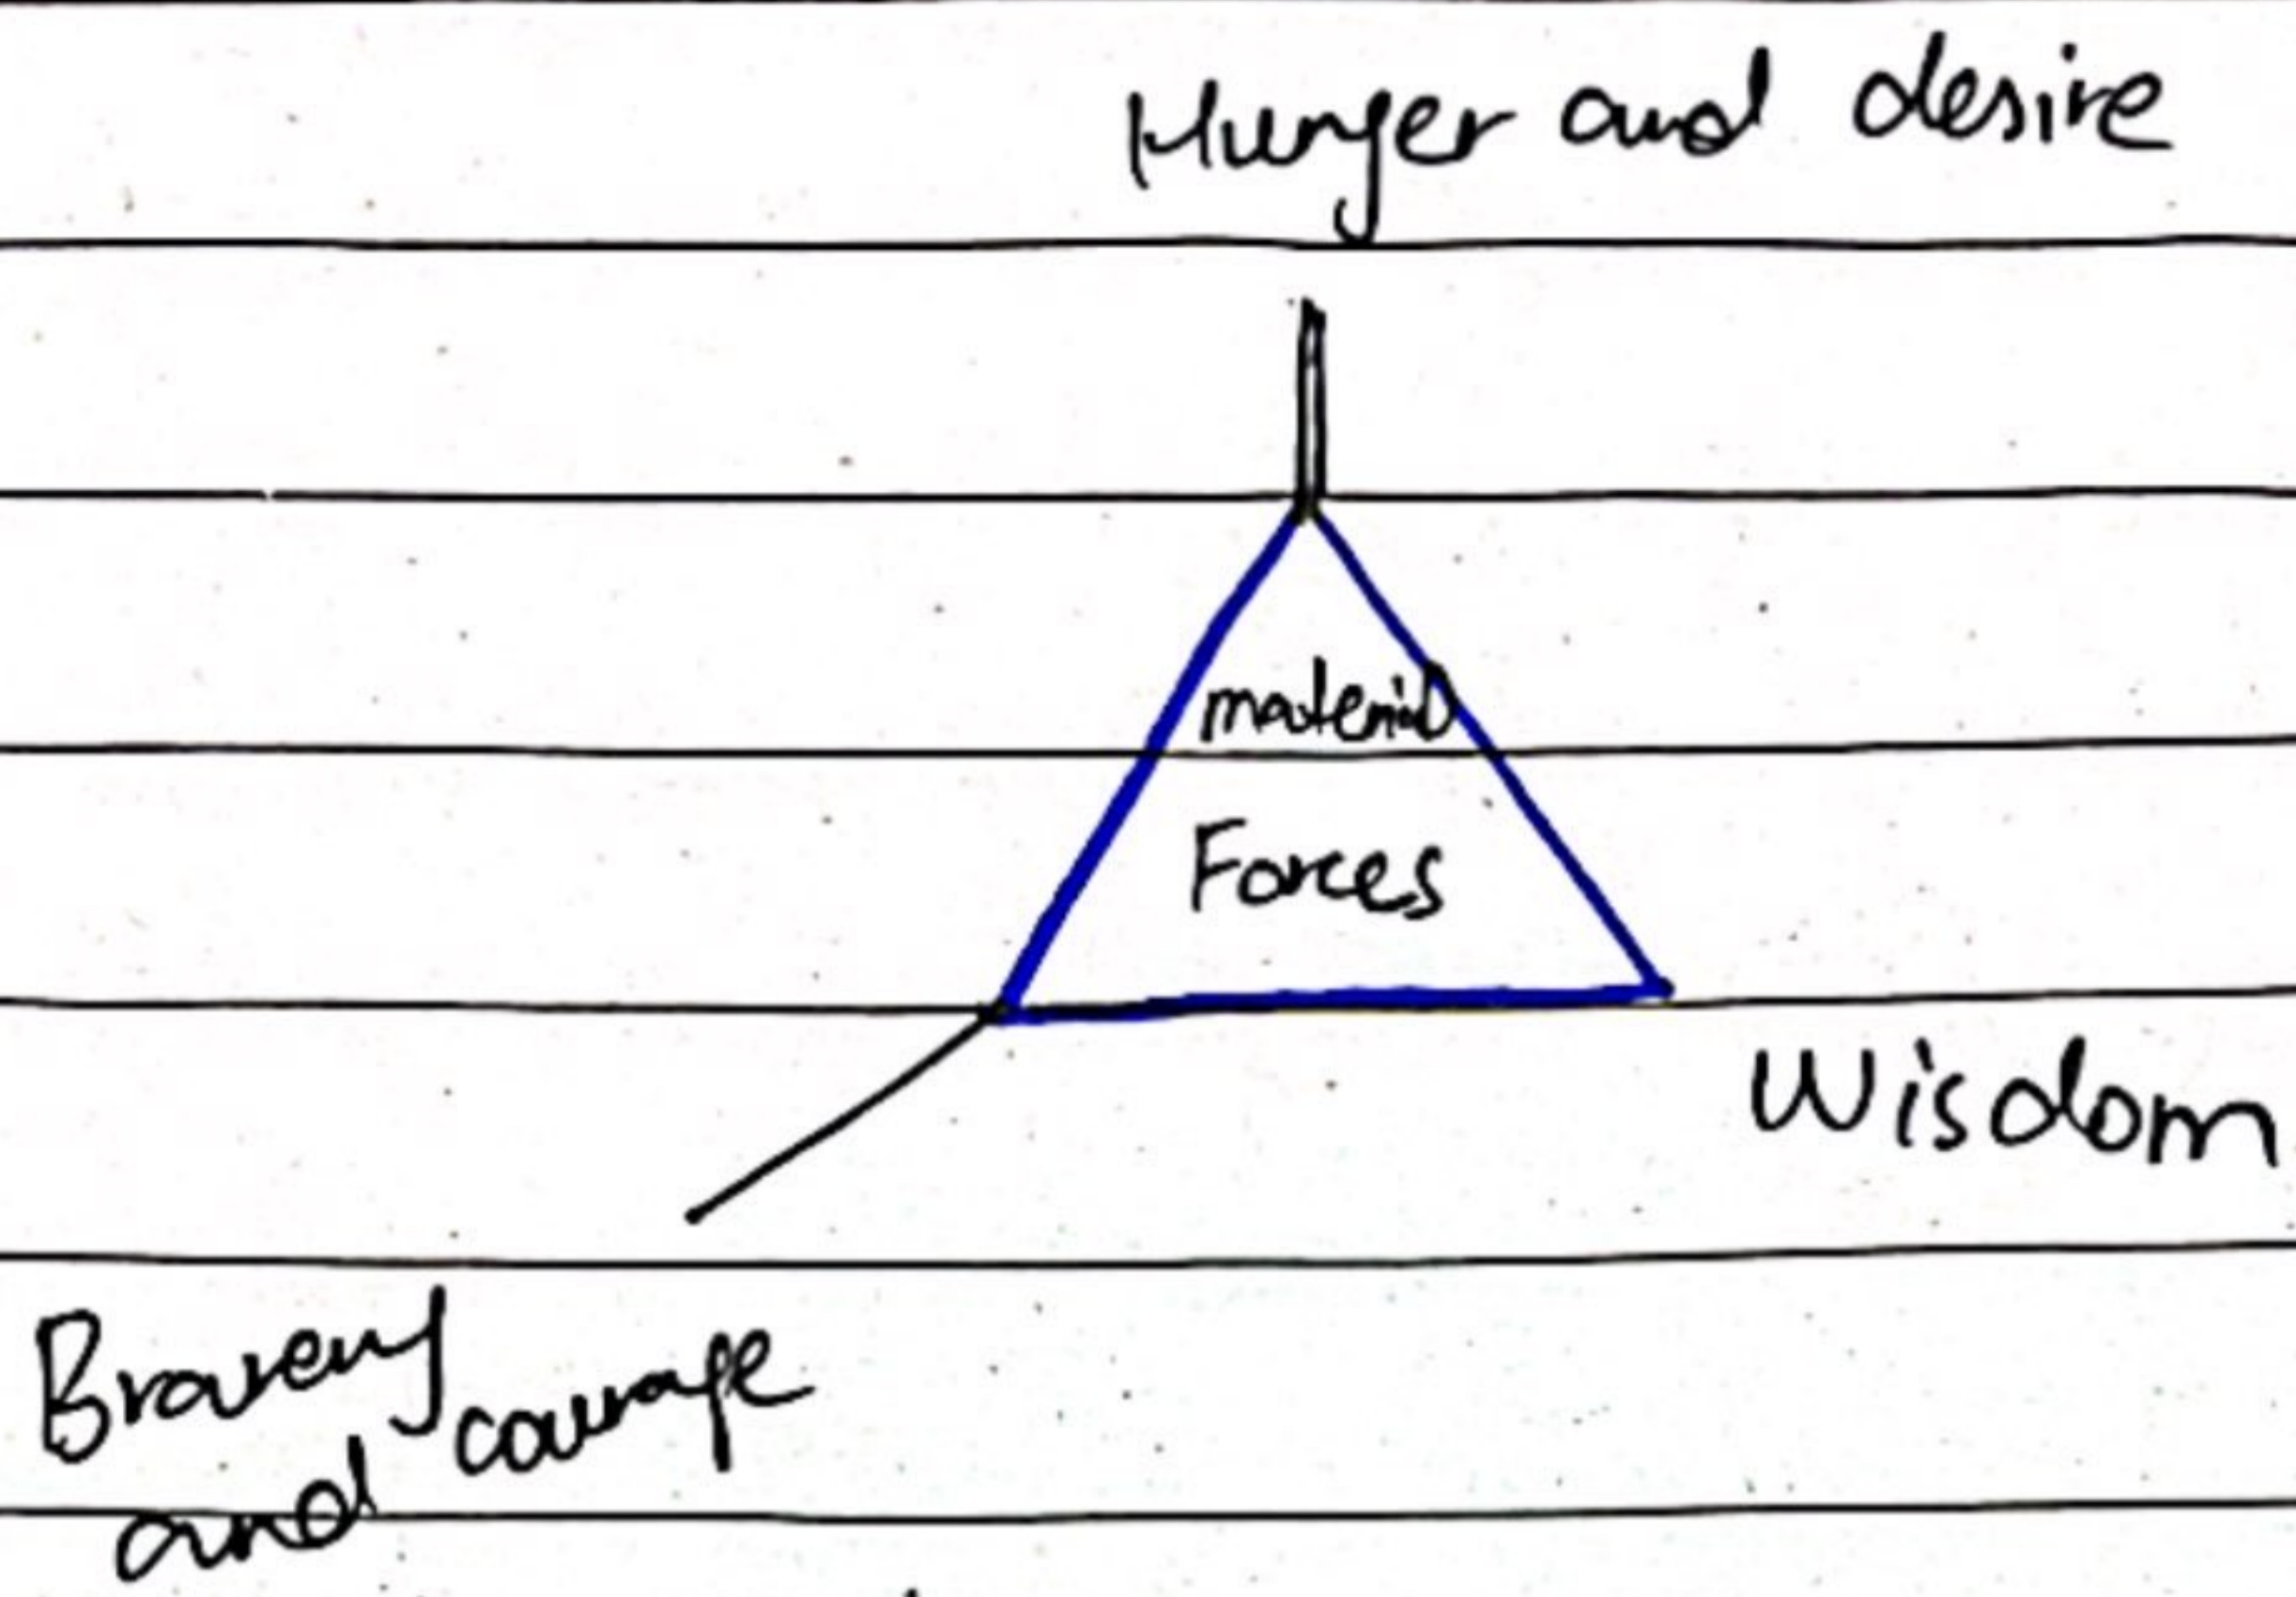 Hunger and desire
material
Forces
Wisdom
Bravery
and courage